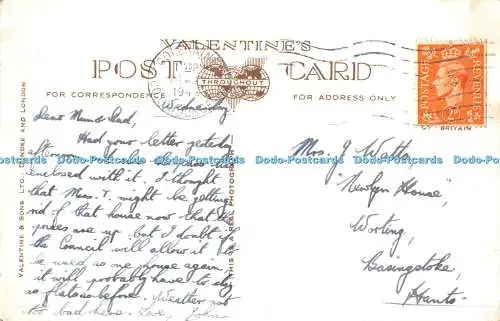 VALENTINE'S
POST CARD
THROUGHOUT
FOR CORRESPONDENCE
FOR ADDRESS ONLY
POSTAGE
REVENUE
VALENTINE & SONS. LTD., DUNDEE AND LONDON
THIS IS A REAL PHOTOGRAPH
Wednesday
Dear Mum & Dad,
Had your letter yesterday
enclosed with it. I thought
that Miss. T. might be getting
rid of that house now that
prices are up. but I doubt if
the Council will allow it to
be used as one house again.
it will probably have to stay
as flats as before. Weather not
too bad here. Love, John
Mrs. J. Watts,
"Newlyn House",
Worting,
Basingstoke,
Hants.
Postcards Postcards Postcards Postcards Postcards